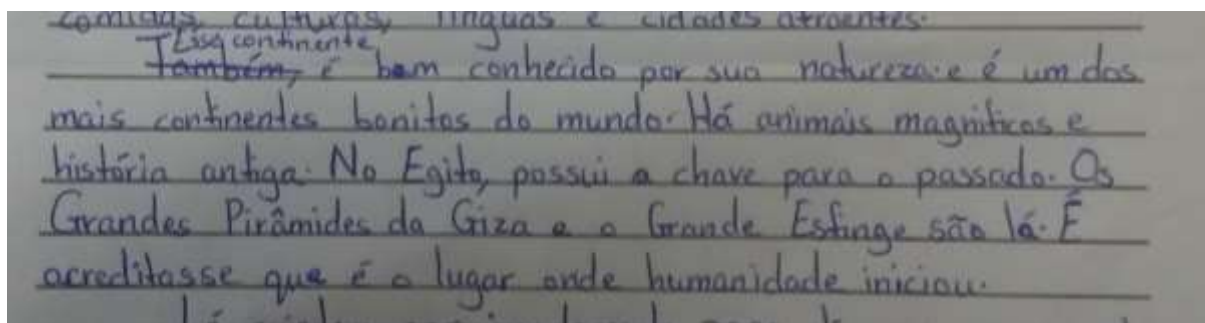 comidas, culturas, línguas e cidades atraentes.
Essa continente
Também, é bem conhecido por sua natureza e é um dos
mais continentes bonitos do mundo. Há animais magníficos e
história antiga. No Egito, possui a chave para o passado. Os
Grandes Pirâmides da Giza e o Grande Esfinge são lá. É
acreditasse que é o lugar onde humanidade iniciou.